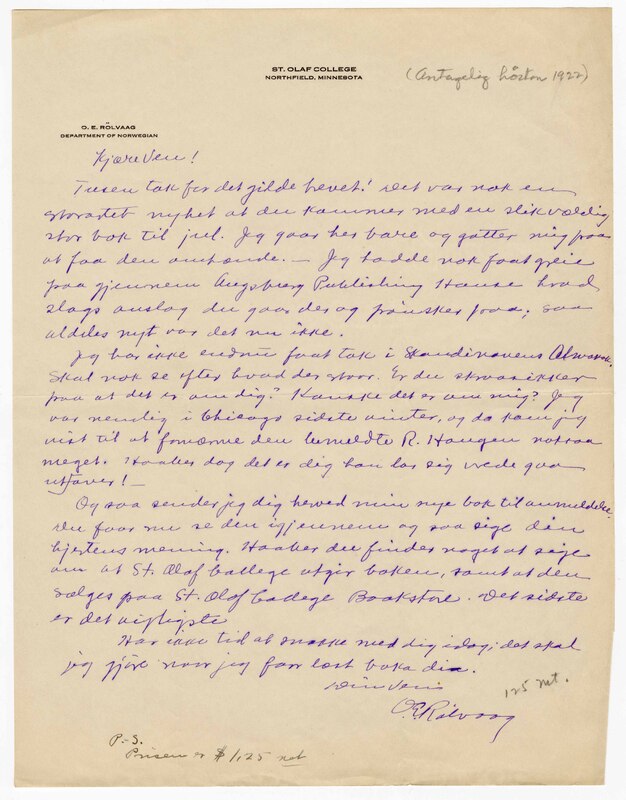 ST. OLAF COLLEGE
NORTHFIELD, MINNESOTA
(Antagelig hösten 1922)
O. E. RÖLVAAG
DEPARTMENT OF NORWEGIAN
Kjære Ven!
Tusen tak for det gilde brevet! Det var nok en
storartet nyhet at du kommer med en slik vældig
stor bok til jul. Jeg gaar her bare og gotter mig paa
at faa den ihænde. — Jeg hadde nok faat greie
paa gjennem Augsburg Publishing House hvad
slags anslag du gaar der og pönsker paa, saa
aldeles nyt var det nu ikke.
Jeg har ikke endnu faat tak i Skandinavens Almanak.
Skal nok se efter hvad der staar. Er du skraasikker
paa at det er om dig? Kanske det er om mig? Jeg
var nemlig i Chicago sidste vinter, og da kom jeg
vist til at fornærme den bemeldte R. Haugen noksaa
meget. Haaber dog det er dig han lar sig vrede gaa
utover! —
Og saa sender jeg dig herved min nye bok til anmeldelse.
Du faar nu se den igjennem og saa sige din
hjertens mening. Haaber du finder noget at sige
om at St. Olaf College utgir boken, samt at den
sælges paa St. Olaf College Bookstore. Det sidste
er det vigtigste
Har ikke tid at snakke med dig idag; det skal
jeg gjöre naar jeg faar læst boka din.
Din Ven
O.E. Rölvaag
125 net.
P.-S.
Prisen er $1,25 net